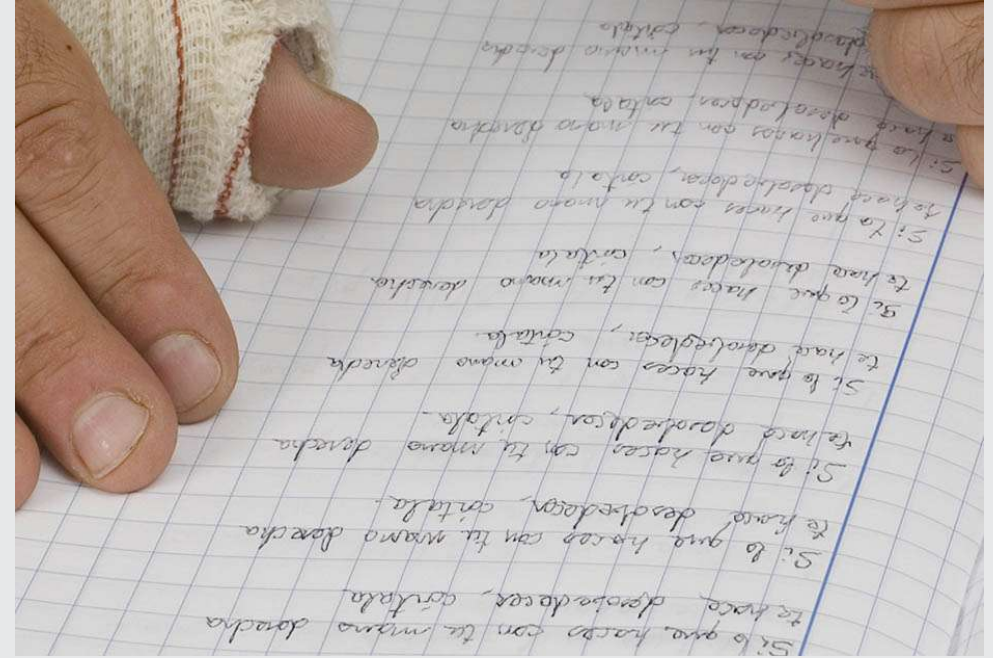 Si lo que haces con tu mano derecha
te hace desobedecer, córtala
Si lo que haces con tu mano derecha
te hace desobedecer, córtala.
Si lo que haces con tu mano derecha
te hace desobedecer, córtala.
Si lo que haces con tu mano derecha
te hace desobedecer, córtala.
Si lo que haces con tu mano derecha
te hace desobedecer, córtala
Si lo que haces con tu mano derecha
te hace desobedecer, córtala
Si lo que haces con tu mano derecha
hace desobedecer, córtala
haces con tu mano derecha
desobedecer, córtala